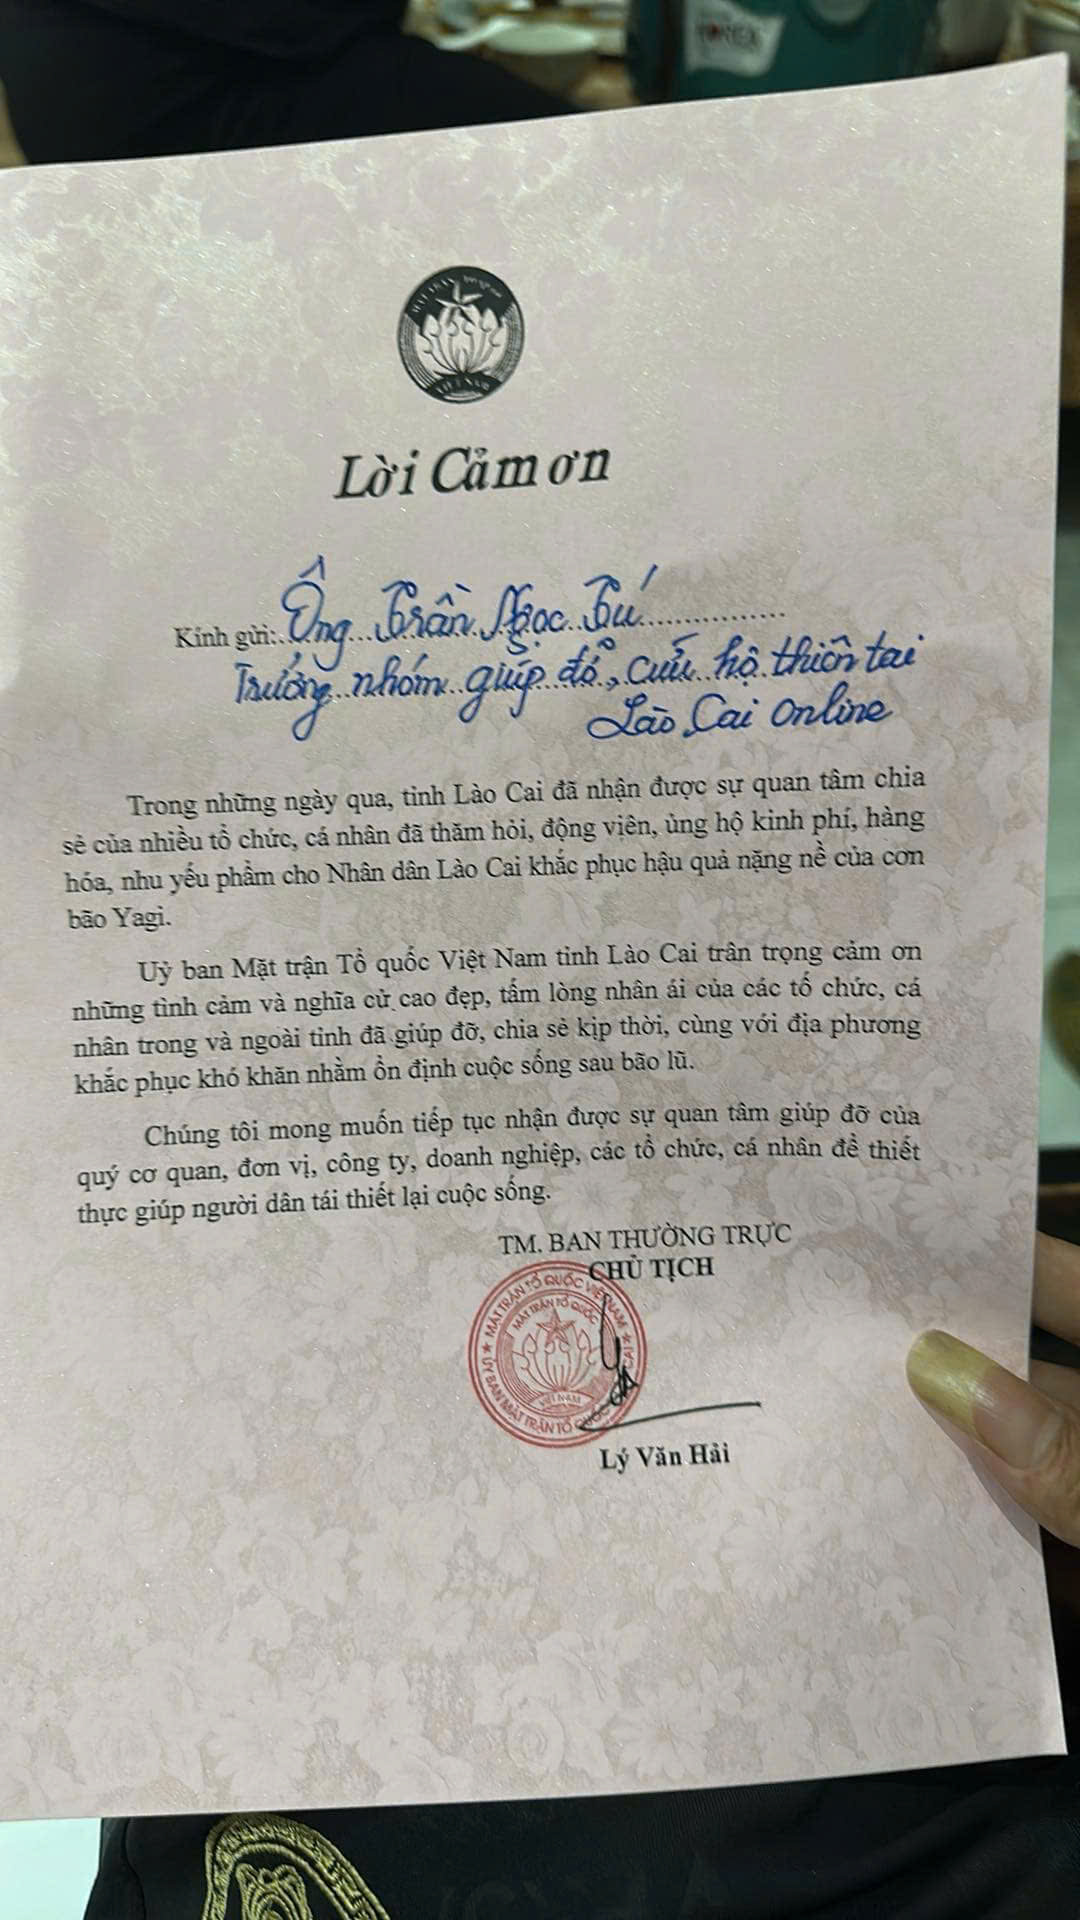 VIỆT NAM
Lời Cảm ơn
Kính gửi: Ông Trần Ngọc Tú
Trưởng nhóm giúp đỏ, cứu hộ thiên tai
Lào Cai Online
Trong những ngày qua, tỉnh Lào Cai đã nhận được sự quan tâm chia
sẻ của nhiều tổ chức, cá nhân đã thăm hỏi, động viên, ủng hộ kinh phí, hàng
hóa, nhu yếu phẩm cho Nhân dân Lào Cai khắc phục hậu quả nặng nề của cơn
bão Yagi.
Uỷ ban Mặt trận Tổ quốc Việt Nam tỉnh Lào Cai trân trọng cảm ơn
những tình cảm và nghĩa cử cao đẹp, tấm lòng nhân ái của các tổ chức, cá
nhân trong và ngoài tỉnh đã giúp đỡ, chia sẻ kịp thời, cùng với địa phương
khắc phục khó khăn nhằm ổn định cuộc sống sau bão lũ.
Chúng tôi mong muốn tiếp tục nhận được sự quan tâm giúp đỡ của
quý cơ quan, đơn vị, công ty, doanh nghiệp, các tổ chức, cá nhân để thiết
thực giúp người dân tái thiết lại cuộc sống.
TM. BAN THƯỜNG TRỰC
CHỦ TỊCH
MẶT TRẬN TỔ QUỐC VIỆT NAM
MẶT TRẬN TỔ QUỐC
VIỆT NAM
ỦY BAN MẶT TRẬN TỔ QUỐC
Lý Văn Hải